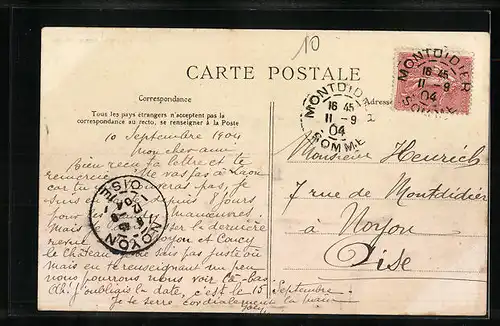 10
CARTE POSTALE
Correspondance
Adresse
Tous les pays étrangers n'acceptent pas la
correspondance au recto, se renseigner à la Poste
MONTDIDIER
16 45
11 - 9
04
SOMME
MONTDIDIER
16 45
11 - 9
04
SOMME
10 Septembre 1904
Mon cher ami
Bien reçu ta lettre et te
remercie. Ne vas pas à Laon
car tu pas, je
depuis 8 jours,
pour manœuvres
Mais la dernière
revue Noyon et Coucy
le Château sais pas juste où
mais en te renseignant un peu
nous pourrons nous voir là-bas.
Ah! j'oubliais la date, c'est le 15 Septembre.
Je te serre cordialement la main
NOYON
OISE
Monsieur
7 rue de Montdidier
à Noyon
Oise